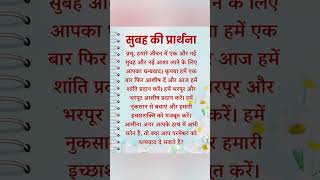 सुबह की प्रार्थना
प्रभु, हमारे जीवन में एक और नई
सुबह और नई आशा लाने के लिए
आपका धन्यवाद। कृपया हमें एक
बार फिर आशीष दें और आज हमें
शांति प्रदान करें। हमें भरपूर और
भरपूर आशीष प्रदान करें। हमें
नुकसान से बचाएं और हमारी
इच्छाशक्ति को मजबूत करें।
आमीन। अगर आपके हाथ में अभी
फ़ोन है, तो क्या आप परमेश्वर को
धन्यवाद दे सकते हैं?